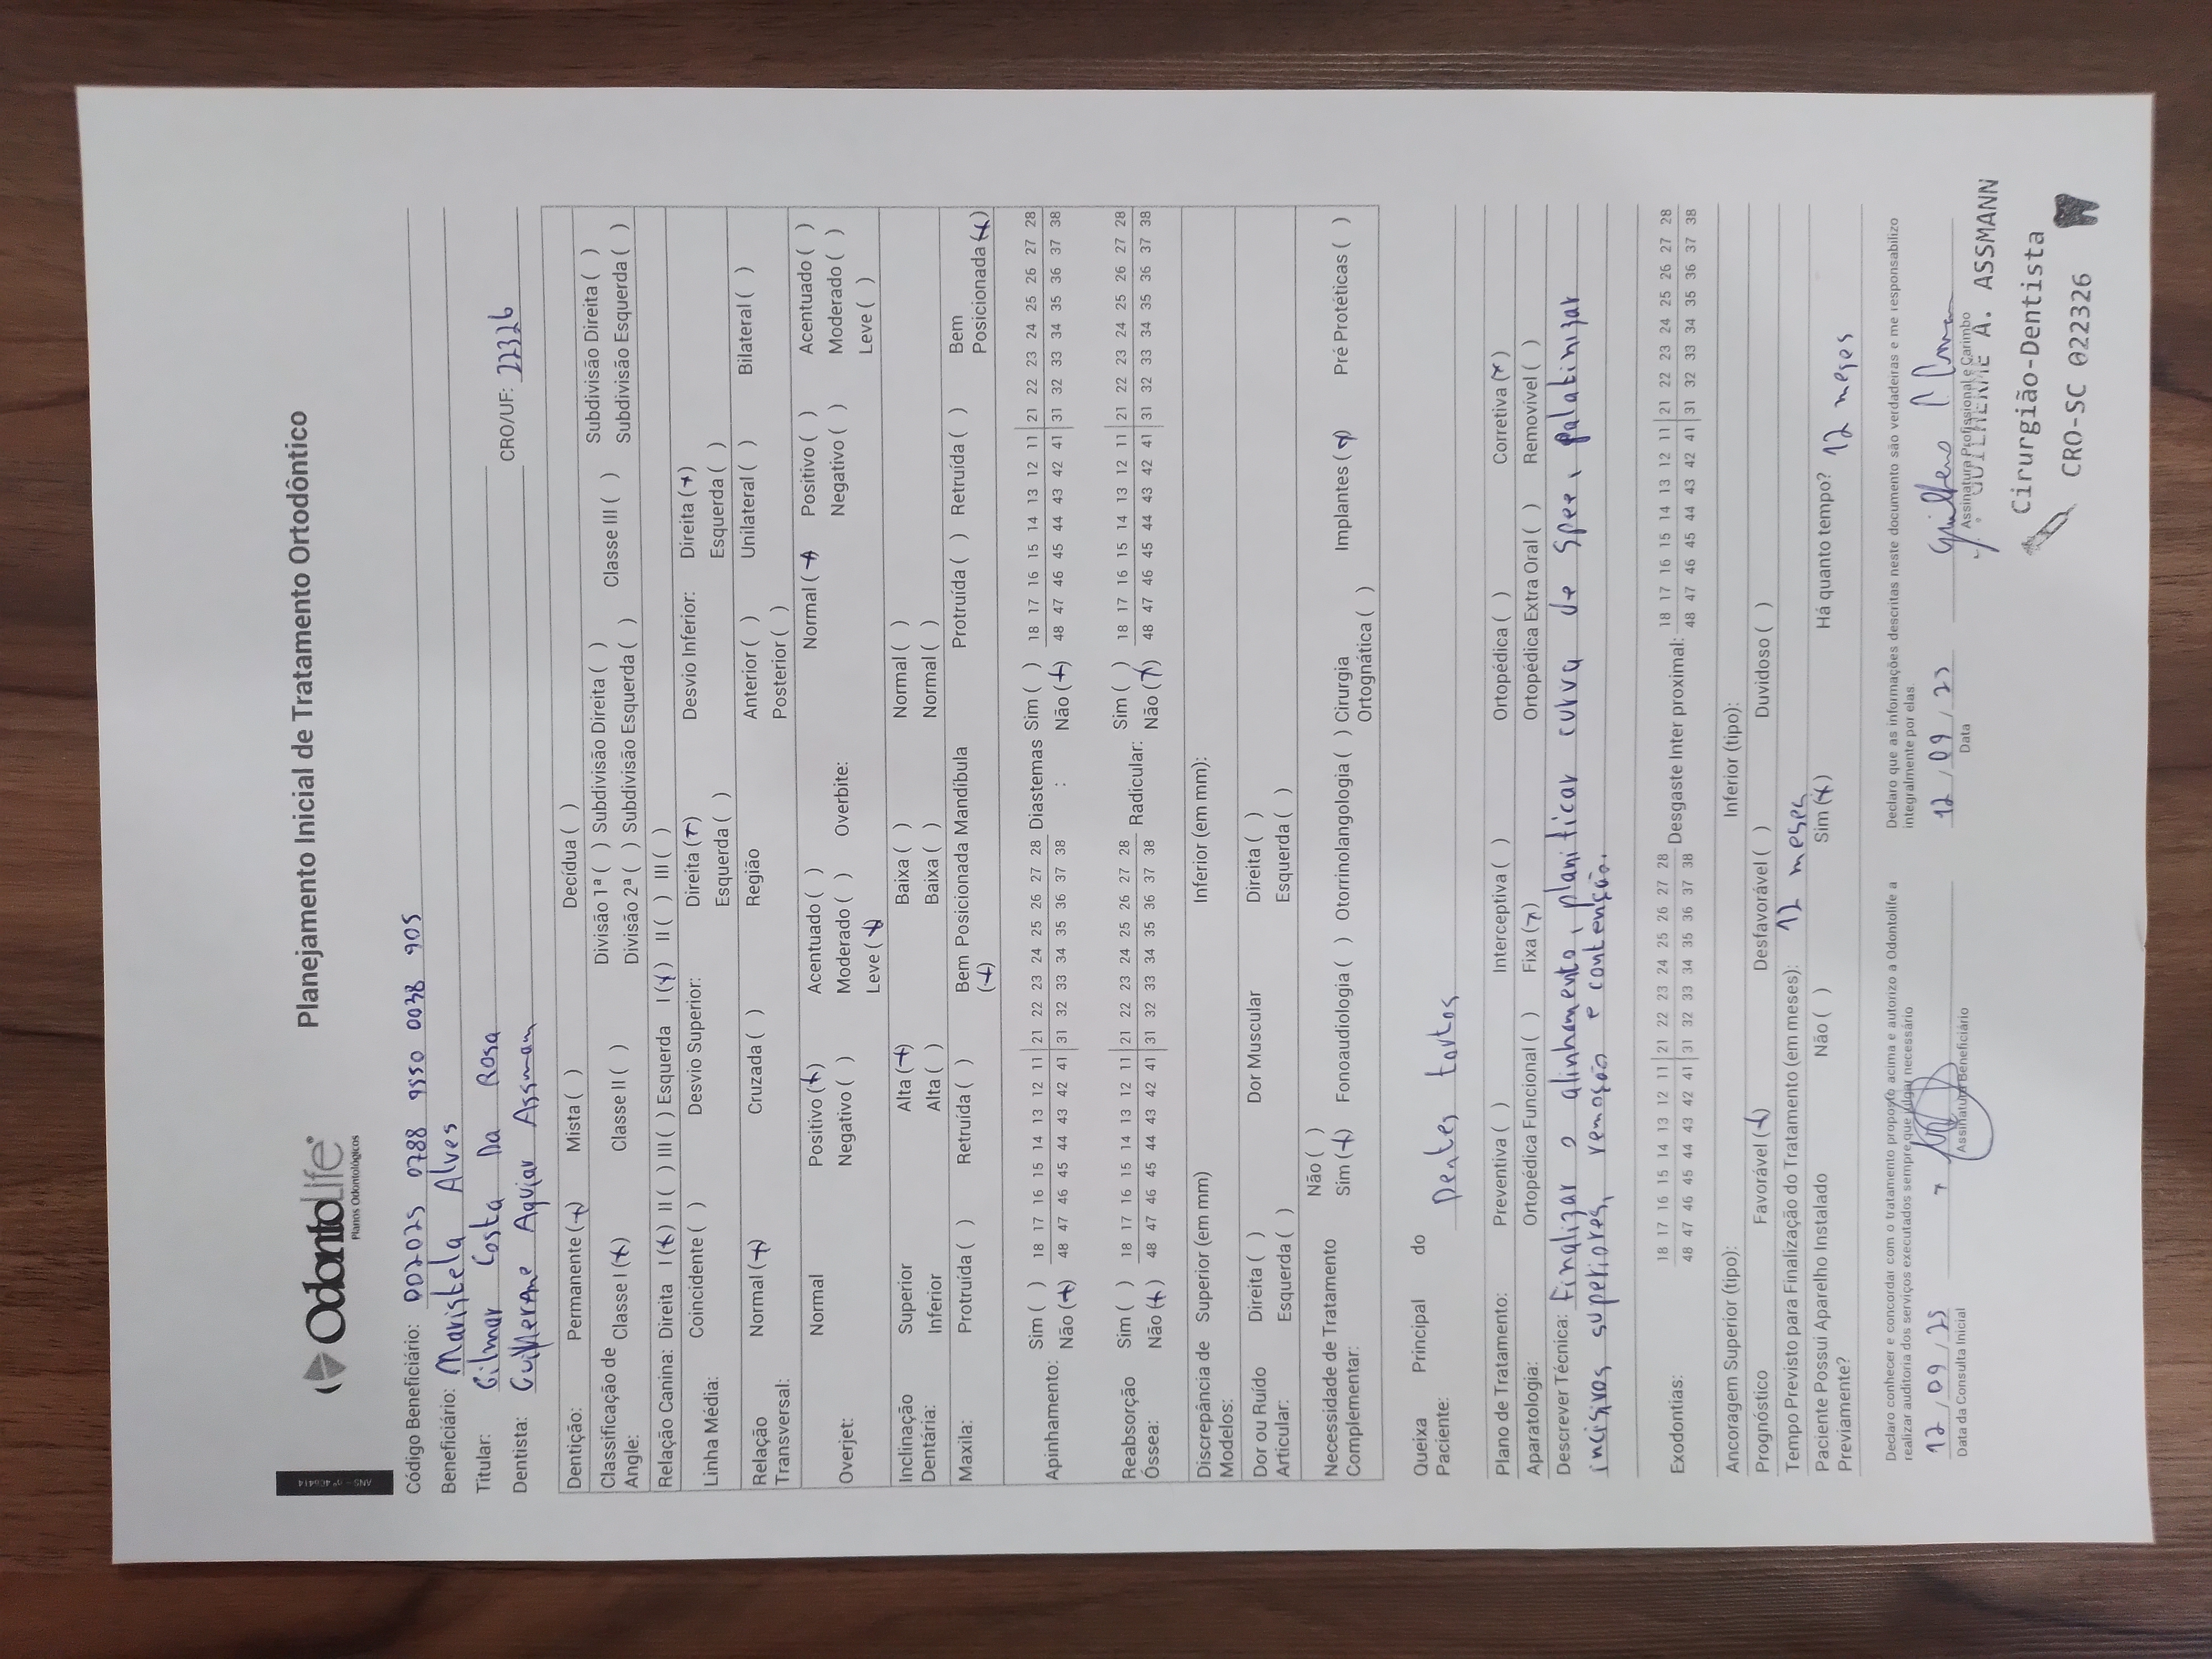 ANS - nº 406414
OdontoLife
Planos Odontológicos
Planejamento Inicial de Tratamento Ortodôntico
Código Beneficiário: 002025 0788 9550 0038 905
Beneficiário: Maristela Alves
Titular: Gilmar Costa Da Rosa
Dentista: Guilherme Aguiar Assmann CRO/UF: 22326
Dentição: Permanente (x) Mista ( ) Decídua ( )
Classificação de Angle: Classe I (x) Classe II ( ) Divisão 1ª ( ) Subdivisão Direita ( ) Classe III ( ) Subdivisão Direita ( )
Divisão 2ª ( ) Subdivisão Esquerda ( ) Subdivisão Esquerda ( )
Relação Canina: Direita I (x) II ( ) III ( ) Esquerda I (x) II ( ) III ( )
Linha Média: Coincidente ( ) Desvio Superior: Direita (x) Desvio Inferior: Direita (x)
Esquerda ( ) Esquerda ( )
Relação Transversal: Normal (x) Cruzada ( ) Região Anterior ( ) Unilateral ( ) Bilateral ( )
Posterior ( )
Overjet: Normal Positivo (x) Acentuado ( ) Overbite: Normal (x Positivo ( ) Acentuado ( )
Negativo ( ) Moderado ( ) Negativo ( ) Moderado ( )
Leve (x) Leve ( )
Inclinação Dentária: Superior Alta (x) Baixa ( ) Normal ( )
Inferior Alta ( ) Baixa ( ) Normal ( )
Maxila: Protruída ( ) Retruída ( ) Bem Posicionada (x) Mandíbula Protruída ( ) Retruída ( ) Bem Posicionada (x)
Apinhamento: Sim ( ) 18 17 16 15 14 13 12 11 21 22 23 24 25 26 27 28 Diastemas : Sim ( ) 18 17 16 15 14 13 12 11 21 22 23 24 25 26 27 28
Não (x) 48 47 46 45 44 43 42 41 31 32 33 34 35 36 37 38 Não (x) 48 47 46 45 44 43 42 41 31 32 33 34 35 36 37 38
Reabsorção Óssea: Sim ( ) 18 17 16 15 14 13 12 11 21 22 23 24 25 26 27 28 Radicular: Sim ( ) 18 17 16 15 14 13 12 11 21 22 23 24 25 26 27 28
Não (x) 48 47 46 45 44 43 42 41 31 32 33 34 35 36 37 38 Não (x) 48 47 46 45 44 43 42 41 31 32 33 34 35 36 37 38
Discrepância de Modelos: Superior (em mm) Inferior (em mm):
Dor ou Ruído Articular: Direita ( ) Dor Muscular Direita ( )
Esquerda ( ) Esquerda ( )
Necessidade de Tratamento Complementar: Não ( )
Sim (x) Fonoaudiologia ( ) Otorrinolangologia ( ) Cirurgia Ortognática ( ) Implantes (x) Pré Protéticas ( )
Queixa Principal do Paciente: Dentes tortos
Plano de Tratamento: Preventiva ( ) Interceptiva ( ) Ortopédica ( ) Corretiva (x)
Aparatologia: Ortopédica Funcional ( ) Fixa (x) Ortopédica Extra Oral ( ) Removível ( )
Descrever Técnica: Finalizar o alinhamento, planificar curva de Spee, palatinizar
incisivos superiores, remoção e contenção.
Exodontias: 18 17 16 15 14 13 12 11 21 22 23 24 25 26 27 28 Desgaste Inter proximal: 18 17 16 15 14 13 12 11 21 22 23 24 25 26 27 28
48 47 46 45 44 43 42 41 31 32 33 34 35 36 37 38 48 47 46 45 44 43 42 41 31 32 33 34 35 36 37 38
Ancoragem Superior (tipo): Inferior (tipo):
Prognóstico Favorável (x) Desfavorável ( ) Duvidoso ( )
Tempo Previsto para Finalização do Tratamento (em meses): 12 meses
Paciente Possui Aparelho Instalado Previamente? Não ( ) Sim (x) Há quanto tempo? 12 meses
Declaro conhecer e concordar com o tratamento proposto acima e autorizo a Odontolife a
realizar auditoria dos serviços executados sempre que julgar necessário
12 / 09 / 25 x
Data da Consulta Inicial Assinatura Beneficiário
Declaro que as informações descritas neste documento são verdadeiras e me responsabilizo
integralmente por elas.
12 / 09 / 25
Data Assinatura Profissional e Carimbo
GUILHERME A. ASSMANN
Cirurgião-Dentista
CRO-SC 022326